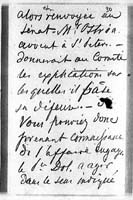 alors renvoyée au
Sénat M. 
avocat à St
donnerait au Comité
les explications sur
lesquelles il base
sa défense.
Vous pouvez donc
prenant connaissance
de l'affaire
le a agir
dans le sens indiqué